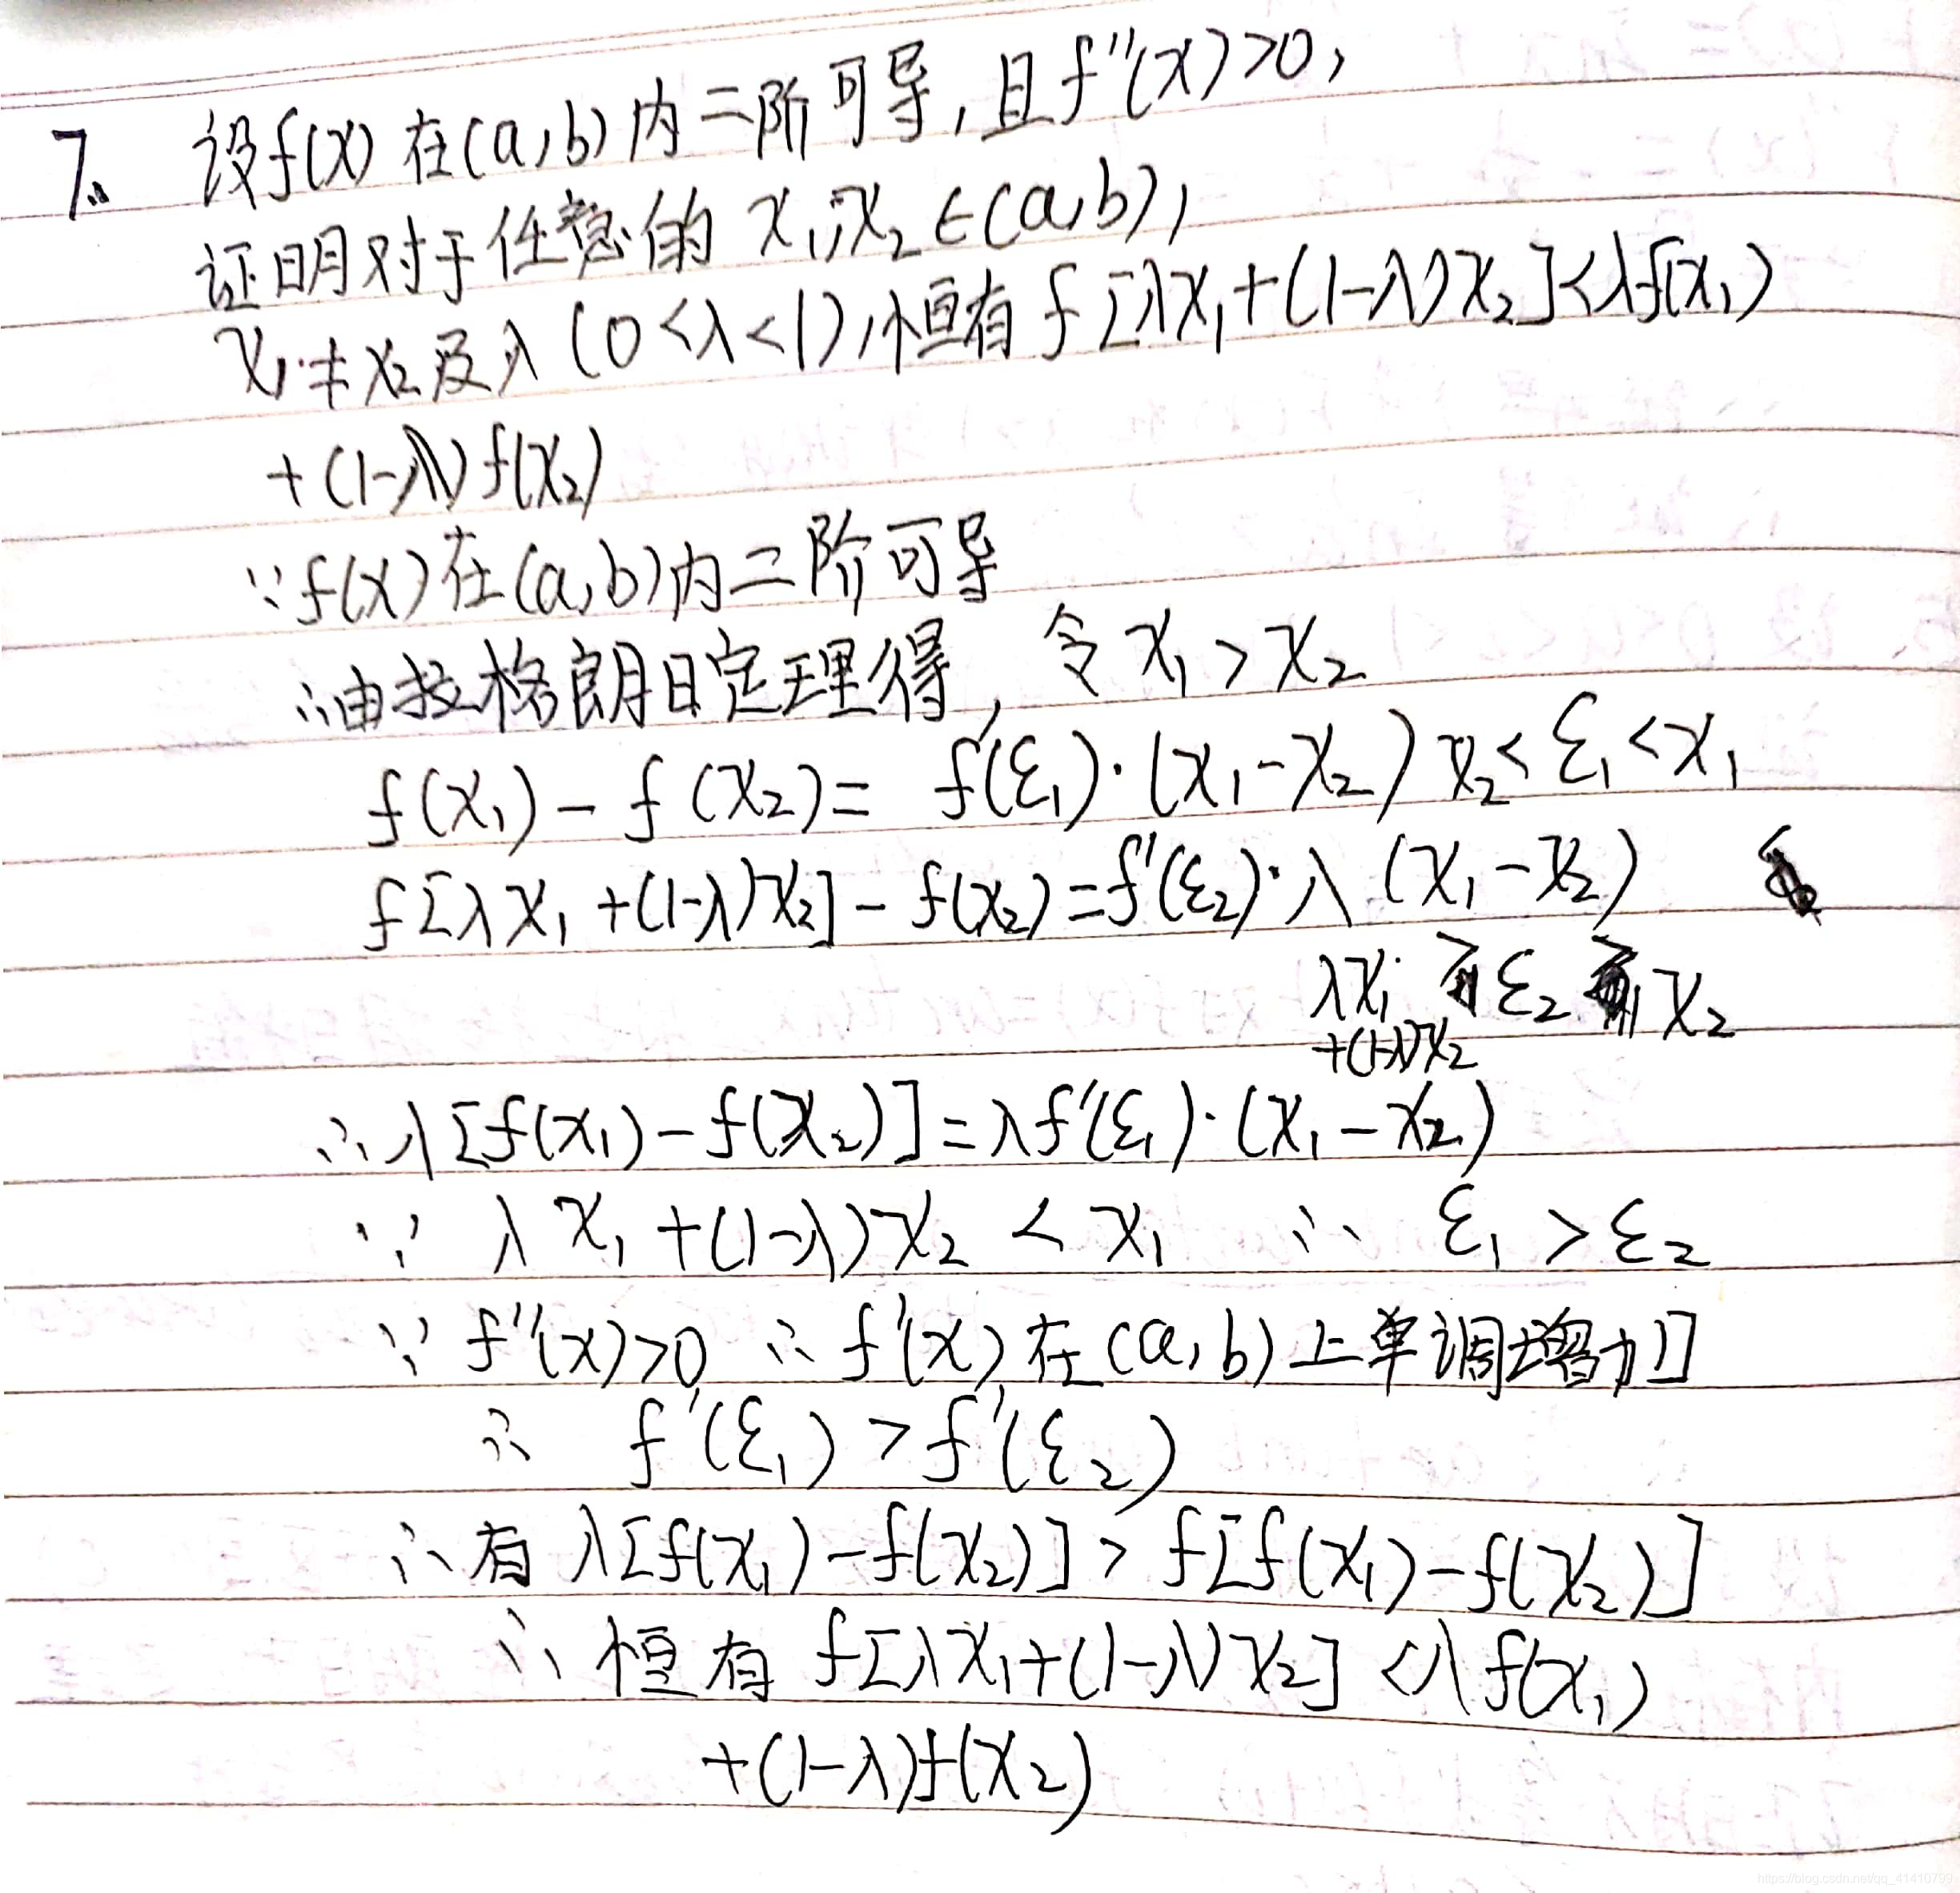 7. 设f(x)在(a,b)内二阶可导,且f''(x)>0,
证明对于任意的 x₁,x₂∈(a,b),
x₁≠x₂及λ(0<λ<1),恒有 f[λx₁+(1-λ)x₂]<λf(x₁)
+(1-λ)f(x₂)
∵f(x)在(a,b)内二阶可导
∴由拉格朗日定理得, 令 x₁>x₂
f(x₁)-f(x₂)= f'(ε₁)·(x₁-x₂) x₂<ε₁<x₁
f[λx₁+(1-λ)x₂]-f(x₂)=f'(ε₂)·λ(x₁-x₂)
λx₁ > ε₂ > x₂
+(1-λ)x₂
∴λ[f(x₁)-f(x₂)]=λf'(ε₁)·(x₁-x₂)
∵ λx₁+(1-λ)x₂ < x₁ ∴ ε₁>ε₂
∵ f''(x)>0 ∴ f'(x)在(a,b)上单调增加
∴ f'(ε₁)>f'(ε₂)
∴有 λ[f(x₁)-f(x₂)]>f[f(x₁)-f(x₂)]
∴恒有 f[λx₁+(1-λ)x₂]<λf(x₁)
+(1-λ)f(x₂)